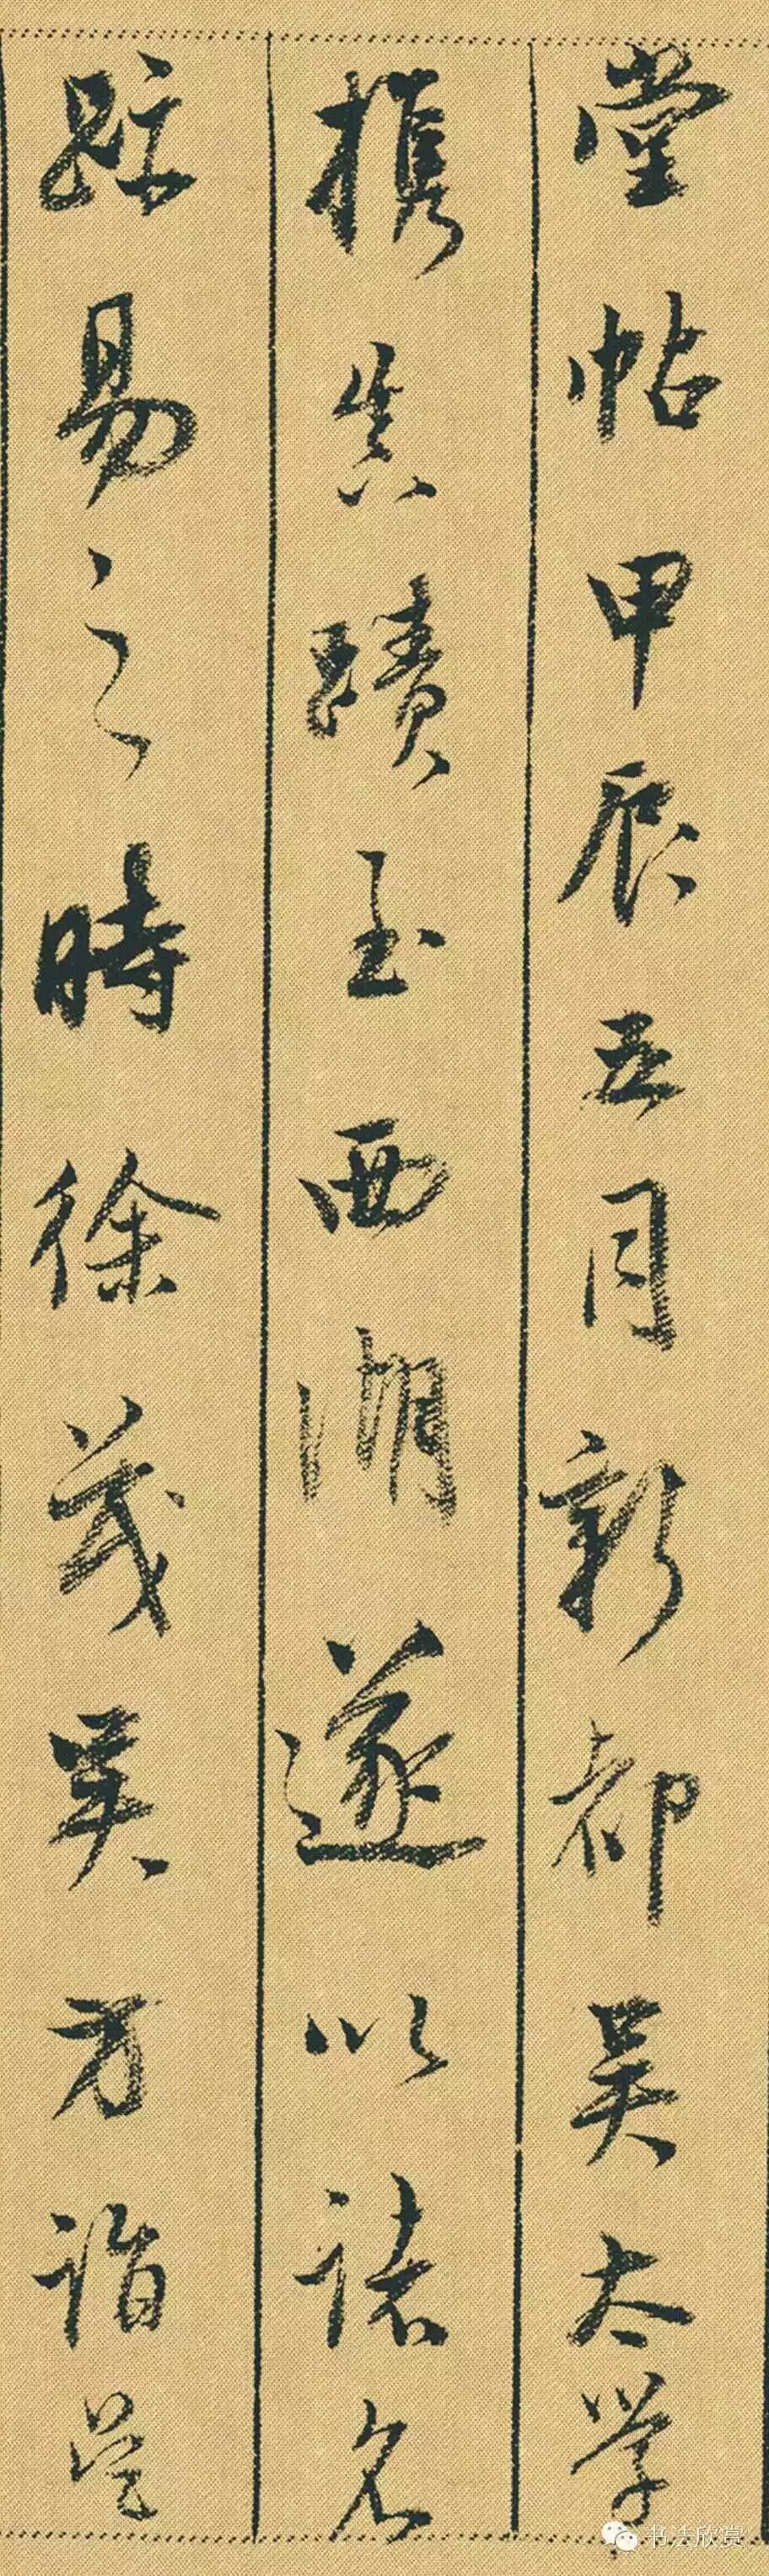 堂帖甲辰五月新都吴太学
携真蹟至西湖遂以诸名
跡易之時徐茂吴方詣吴
书法欣赏